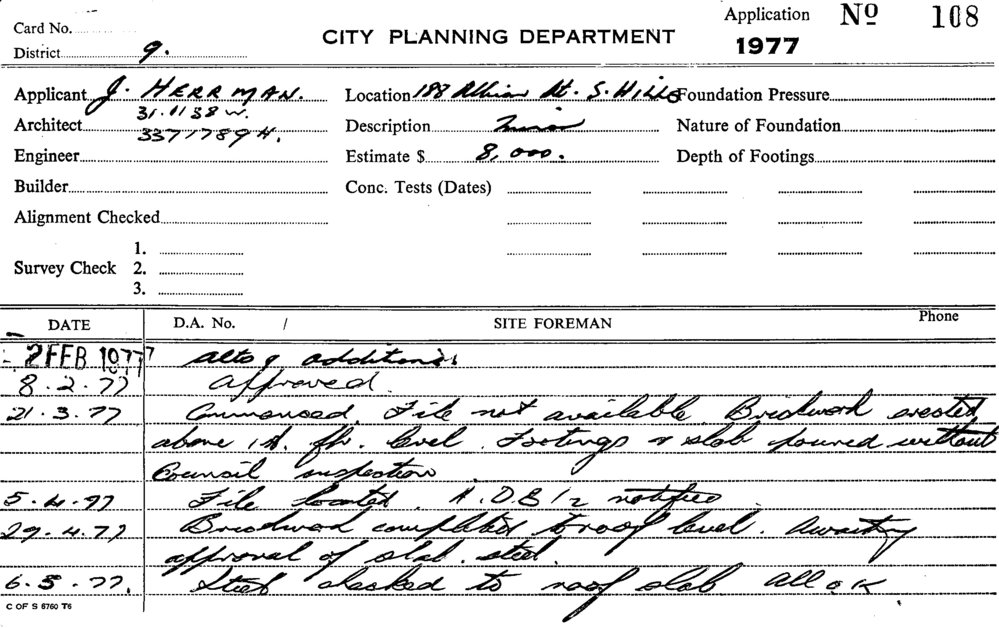 Card No.
District 9.
CITY PLANNING DEPARTMENT
Application No 108
1977
Applicant J. HERRMAN.
31.1138 W.
Architect 3371789 H.
Engineer
Builder
Alignment Checked
Survey Check 1.
2.
3.
Location 188 Albion St. S. HILLS
Description Minor
Estimate $ 8,000.
Conc. Tests (Dates)
Foundation Pressure
Nature of Foundation
Depth of Footings
DATE D.A. No. / SITE FOREMAN Phone
- 2 FEB 1977 alts & additions
8.2.77 approved.
21.3.77 Commenced. File not available. Brickwork erected
above 1st. flr. level. Footings & slab poured without
Council inspection
5.4.77 File located. notified.
29.4.77 Brickwork completed to roof level. Awaiting
approval of slab steel.
6.5.77. Steel checked to roof slab all OK
C OF S 6760 T6